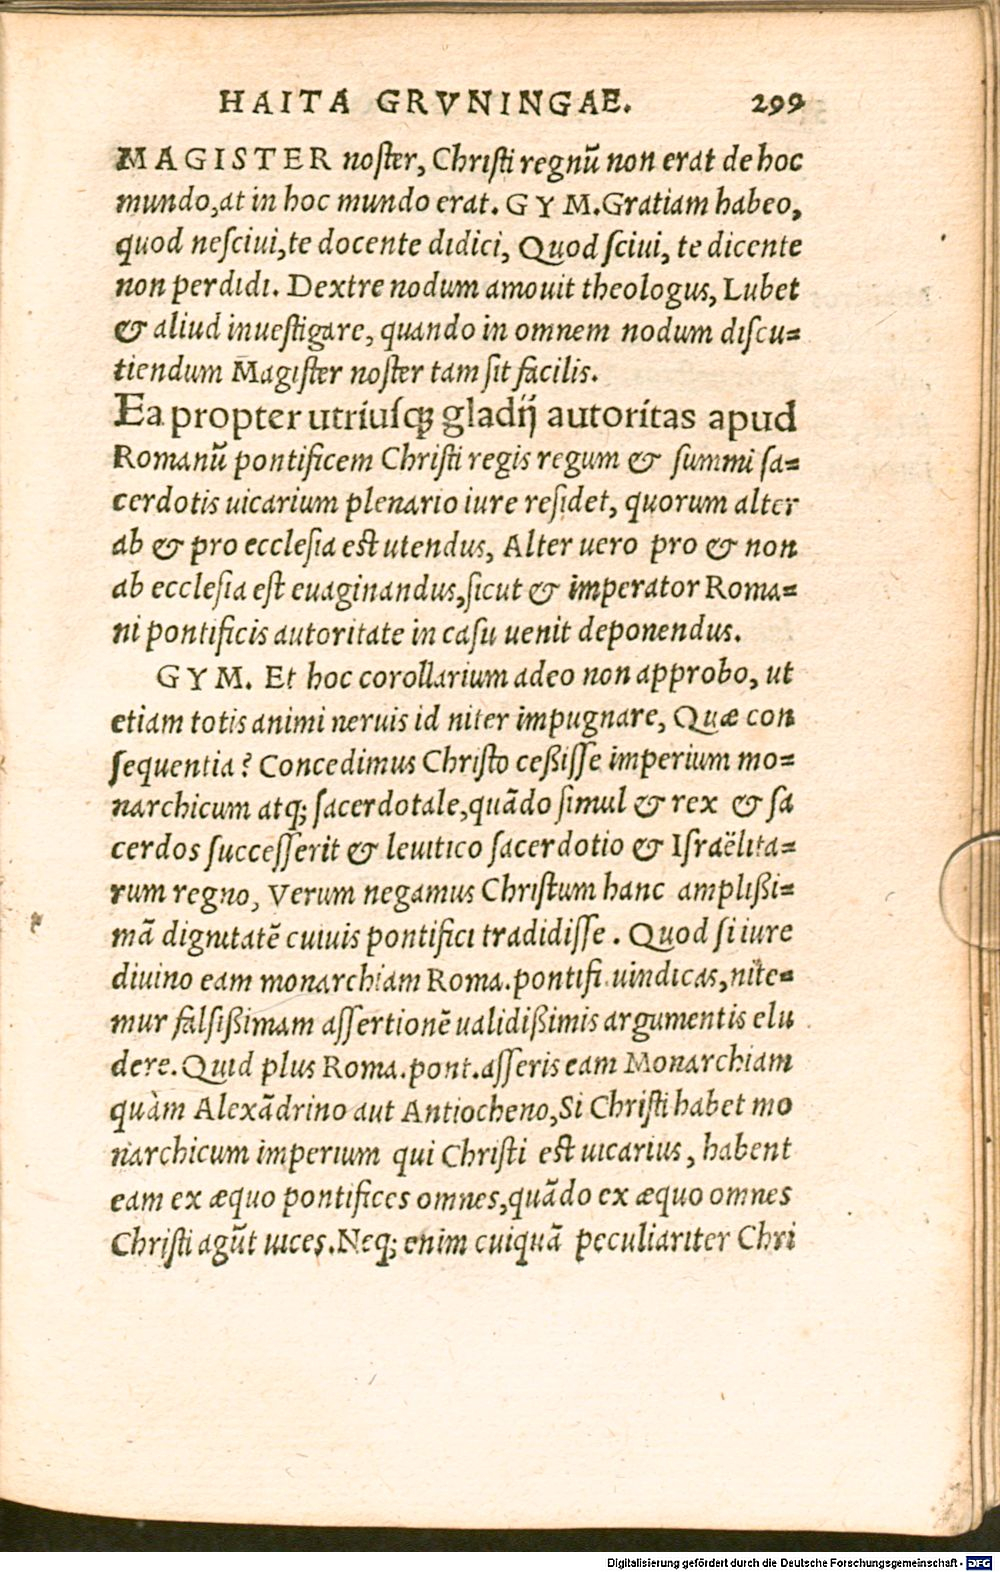 HAITA GRVNINGAE. 299
MAGISTER noſter, Chriſti regnũ non erat de hoc
mundo,at in hoc mundo erat. GYM.Gratiam habeo,
quod neſciui,te docente didici, Quod ſciui, te dicente
non perdidi. Dextre nodum amouit theologus, Lubet
& aliud inueſtigare, quando in omnem nodum diſcu=
tiendum Magiſter noſter tam ſit facilis.
Ea propter utriuſqꝫ gladij autoritas apud
Romanũ pontificem Chriſti regis regum & ſummi ſa=
cerdotis uicarium plenario iure reſidet, quorum alter
ab & pro eccleſia eſt utendus, Alter uero pro & non
ab eccleſia eſt euaginandus,ſicut & imperator Roma=
ni pontificis autoritate in caſu uenit deponendus.
GYM. Et hoc corollarium adeo non approbo, ut
etiam totis animi neruis id niter impugnare, Quæ con
ſequentia? Concedimus Chriſto ceßiſſe imperium mo=
narchicum atqꝫ ſacerdotale,quãdo ſimul & rex & ſa
cerdos ſucceſſerit & leuitico ſacerdotio & Iſraëlita=
rum regno, Verum negamus Chriſtum hanc amplißi=
mã dignitatẽ cuiuis pontifici tradidiſſe. Quod ſi iure
diuino eam monarchiam Roma.pontifi.uindicas,nite=
mur falſißimam aſſertionẽ ualidißimis argumentis elu
dere.Quid plus Roma.pont.aſſeris eam Monarchiam
quàm Alexãdrino aut Antiocheno,Si Chriſti habet mo
narchicum imperium qui Chriſti eſt uicarius, habent
eam ex æquo pontifices omnes,quãdo ex æquo omnes
Chriſti agũt uices.Neqꝫ enim cuiquã peculiariter Chri
Digitalisierung gefördert durch die Deutsche Forschungsgemeinschaft - DFG